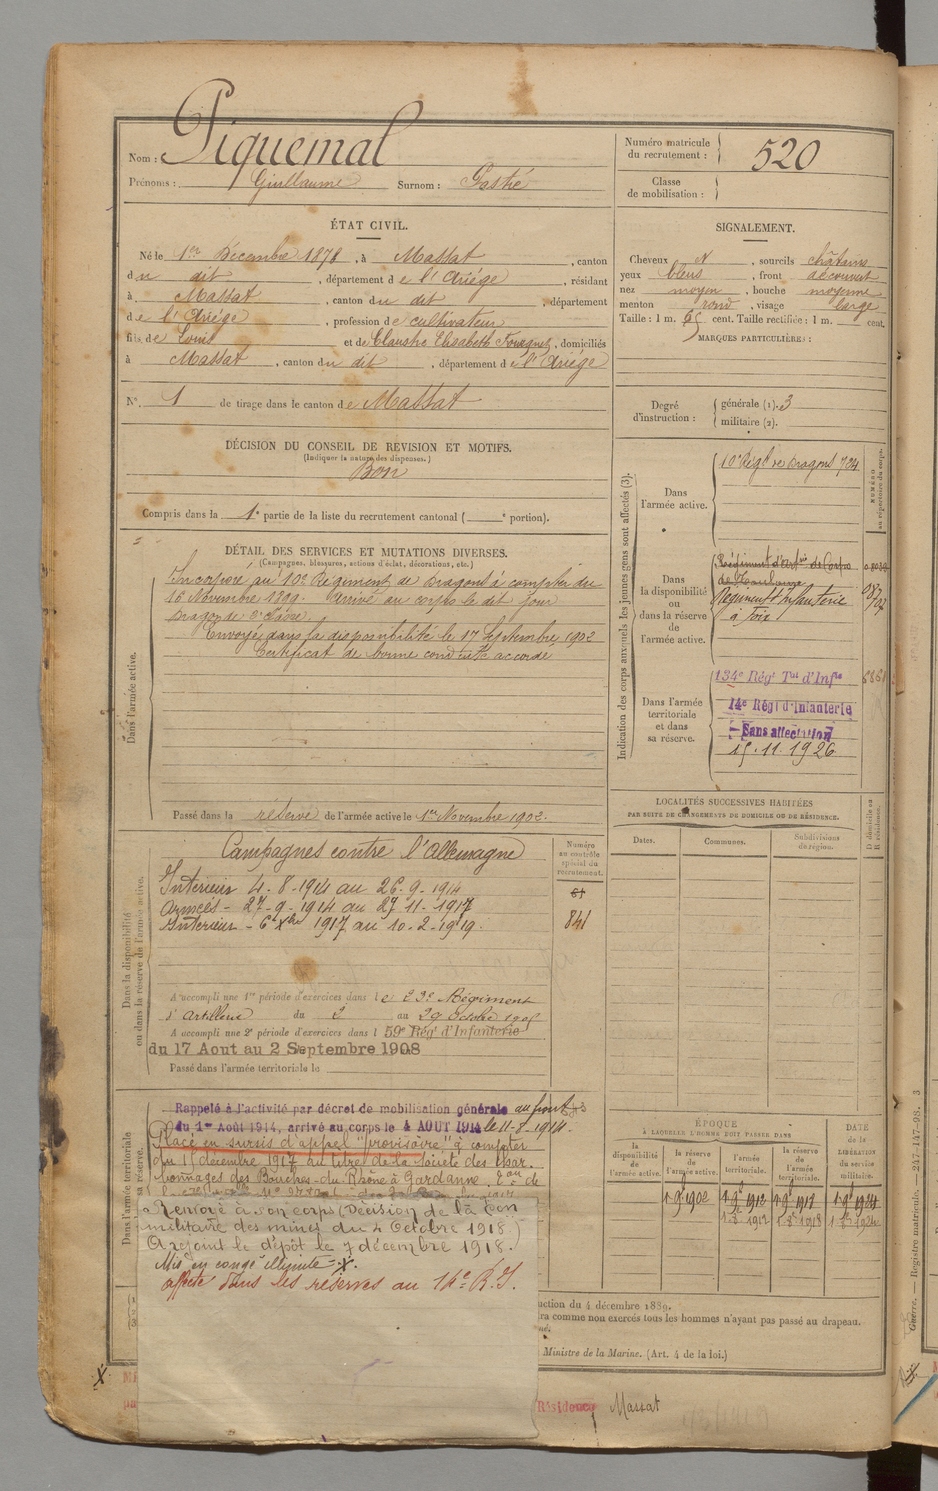 Nom : Piquemal
Prénoms : Guillaume Surnom : Gastié
Numéro matricule du recrutement : 520
Classe de mobilisation :
ÉTAT CIVIL.
Né le 1er Décembre 1878, à Massat, canton
du dit, département de l'Ariége, résidant
à Massat, canton du dit, département
de l'Ariége, profession de cultivateur
fils de Louis et de Claustre Elisabeth, domiciliés
à Massat, canton du dit, département de l'Ariége
N° 1 de tirage dans le canton de Massat
SIGNALEMENT.
Cheveux N, sourcils châtains
yeux bleus, front découvert
nez moyen, bouche moyenne
menton rond, visage large
Taille : 1 m. 65 cent. Taille rectifiée : 1 m. cent.
MARQUES PARTICULIÈRES :
Degré d'instruction : générale (1). 3
militaire (2).
DÉCISION DU CONSEIL DE REVISION ET MOTIFS.
(Indiquer la nature des dispenses.)
Bon
Compris dans la 1e partie de la liste du recrutement cantonal ( e portion).
DÉTAIL DES SERVICES ET MUTATIONS DIVERSES.
(Campagnes, blessures, actions d'éclat, décorations, etc.)
Dans l'armée active.
Incorporé au 10e Régiment de Dragons à compter du
16 Novembre 1899. Arrivé au corps le dit jour
Dragon de 2e classe.
Envoyé dans la disponibilité le 17 Septembre 1902
Certificat de bonne conduite accordé
Passé dans la réserve de l'armée active le 1er Novembre 1902.
Indication des corps auxquels les jeunes gens sont affectés (3).
NUMÉRO au répertoire du corps.
Dans l'armée active.
10e Régt de Dragons 724
Dans la disponibilité ou dans la réserve de l'armée active.
Régiment d'Artrie de Corps
de Toulouse
Régiment Infanterie
à Foix
Dans l'armée territoriale et dans sa réserve.
134e Rég' Tal d'Infie
14e Régt d'Infanterie
Sans affectation
15.11.1926
LOCALITÉS SUCCESSIVES HABITÉES
PAR SUITE DE CHANGEMENTS DE DOMICILE OU DE RÉSIDENCE.
Dates. Communes. Subdivisions de région. D domicile ou R résidence.
Dans la disponibilité ou dans la réserve de l'armée active.
Numéro au contrôle spécial du recrutement.
61
841
Campagnes contre l'Allemagne
Intérieur 4-8-1914 au 26-9-1914
Armées - 27-9-1914 au 27-11-1917
Intérieur - 6 Xbre 1917 au 10-2-1919.
A accompli une 1re période d'exercices dans le 23e Régiment
d'Artillerie du 2 au 29 Octobre 1905
A accompli une 2e période d'exercices dans l 59e Rég' d'Infanterie
du 17 Aout au 2 Septembre 1908
Passé dans l'armée territoriale le
Dans l'armée territoriale et dans sa réserve.
Rappelé à l'activité par décret de mobilisation générale au front
du 1er Août 1914, arrivé au corps le 4 AOUT 1914 le 11-8-1914.
Placé en sursis d'appel "provisoire" à compter
du 15 décembre 1917 au titre de la Société des Char-
bonnages des Bouches-du-Rhône à Gardanne.
Renvoyé à son corps (Décision de la Con
militaire des mines du 4 Octobre 1918)
A rejoint le dépôt le 7 décembre 1918.)
Mis en congé illimité =.X.
affecté dans les réserves au 14e R.I.
ÉPOQUE
À LAQUELLE L'HOMME DOIT PASSER DANS
la disponibilité de l'armée active. la réserve de l'armée active. l'armée territoriale. la réserve de l'armée territoriale. DATE de la LIBÉRATION du service militaire.
1 9bre 1902 1 9bre 1912 1 9bre 1918 1 9bre 1924
1 8bre 1912 1 8bre 1918 1 8bre 1924
uction du 4 décembre 1889.
ra comme non exercés tous les hommes n'ayant pas passé au drapeau.
Ministre de la Marine. (Art. 4 de la loi.)
Résidence Massat
Guerre. — Registre matricule. — 247-147-98. 3